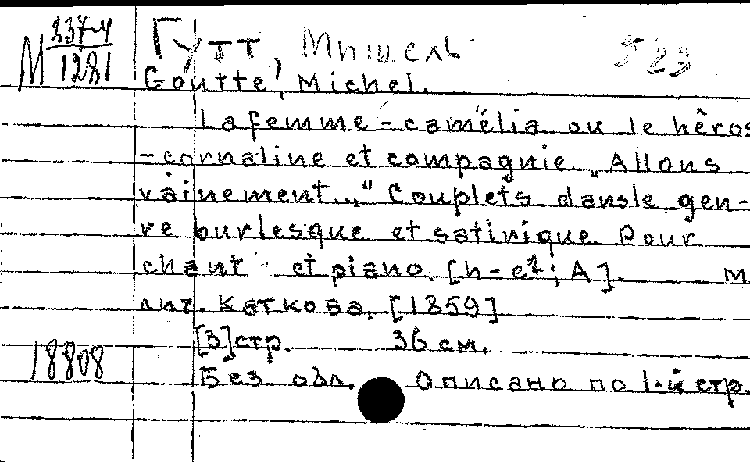 М 337-4/1281
Гутт, Мишель
523
Goutte, Michel.
La femme-camélia ou le hêros
-cornaline et compagnie. „Allons
vainement..." Couplets dansle gen-
re burlesque et satirique. Pour
chant et piano. [h-e²; A]. М
лит. Каткова, [1859]
[3]стр. 36 см.
18808
Без обл. Описано по 1-й стр.